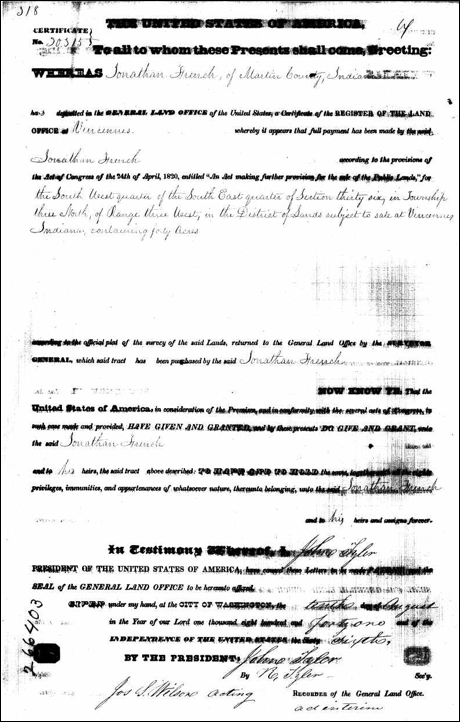 318
THE UNITED STATES OF AMERICA,
CERTIFICATE
No.
To all to whom these Presents shall come, Greeting:
WHEREAS Jonathan French, of Martin County, Indiana
ha deposited in the GENERAL LAND OFFICE of the United States, a Certificate of the REGISTER OF THE LAND
OFFICE at Vincennes whereby it appears that full payment has been made by the said
Jonathan French according to the provisions of
the Act of Congress of the 24th of April, 1820, entitled "An Act making further provision for the sale of the Public Lands," for
the South West quarter of the South East quarter of Section thirty six, in Township
three North, of Range three West, in the District of Lands subject to sale at Vincennes
Indiana, containing forty acres
according to the official plat of the survey of the said Lands, returned to the General Land Office by the SURVEYOR
GENERAL, which said tract has been purchased by the said Jonathan French
NOW KNOW YE, That the
United States of America, in consideration of the Premises, and in conformity with the several acts of Congress, in
such case made and provided, HAVE GIVEN AND GRANTED, and by these presents DO GIVE AND GRANT, unto
the said Jonathan French
and to his heirs, the said tract above described: TO HAVE AND TO HOLD the same, together with all the rights,
privileges, immunities, and appurtenances of whatsoever nature, thereunto belonging, unto the said Jonathan French
and to his heirs and assigns forever.
In Testimony Whereof, I, John Tyler
PRESIDENT OF THE UNITED STATES OF AMERICA, have caused these Letters to be made PATENT, and the
SEAL of the GENERAL LAND OFFICE to be hereunto affixed.
GIVEN under my hand, at the CITY OF WASHINGTON, the tenth day of August
in the Year of our Lord one thousand eight hundred and forty one and of the
INDEPENDENCE OF THE UNITED STATES the Sixty sixth
BY THE PRESIDENT: John Tyler
By R. Tyler Sec'y.
Jos. S. Wilson acting RECORDER of the General Land Office.
ad interim
266403